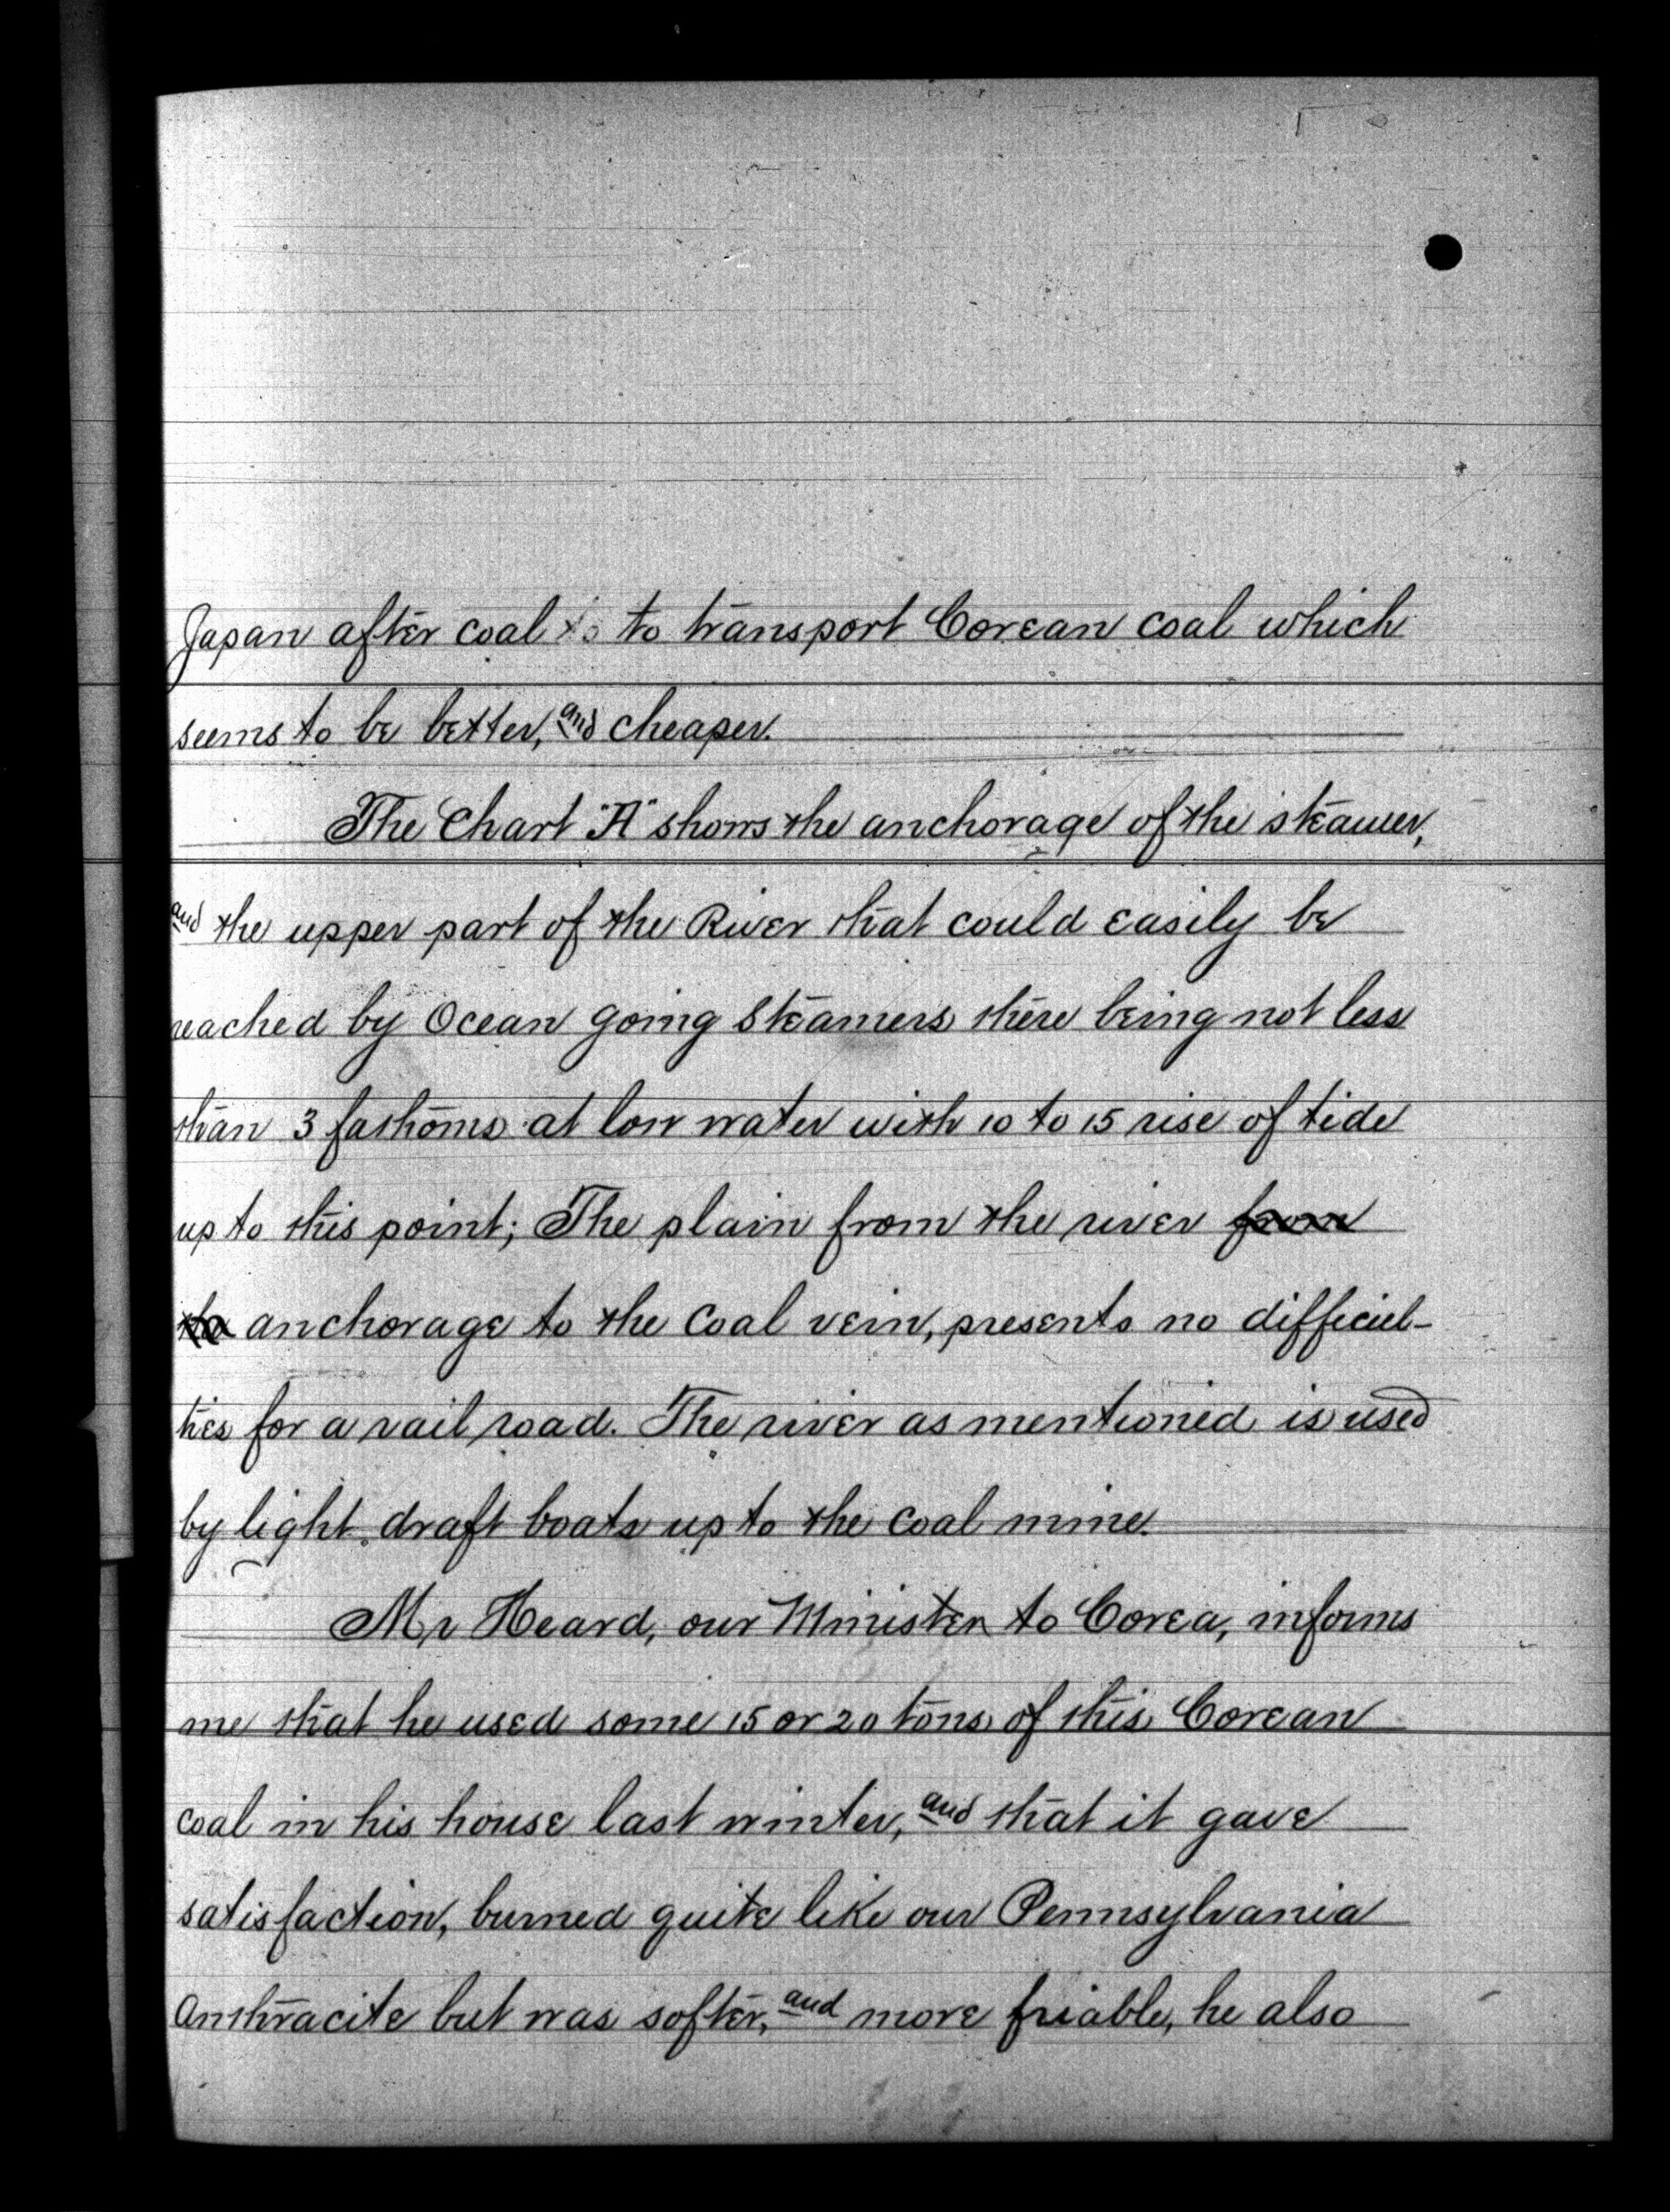 Japan after coal to to transport Corean coal which
seems to be better, and cheaper.
The Chart "A" shows the anchorage of the steamer,
and the upper part of the River that could easily be
reached by Ocean going Steamers there being not less
than 3 fathoms at low water with 10 to 15 rise of tide
up to this point; The plain from the river from
to anchorage to the coal vein, presents no difficul-
ties for a rail road. The river as mentioned is used
by light draft boats up to the coal mine.
Mr Heard, our Minister to Corea, informs
me that he used some 15 or 20 tons of this Corean
coal in his house last winter, and that it gave
satisfaction, burned quite like our Pennsylvania
Anthracite but was softer, and more friable, he also